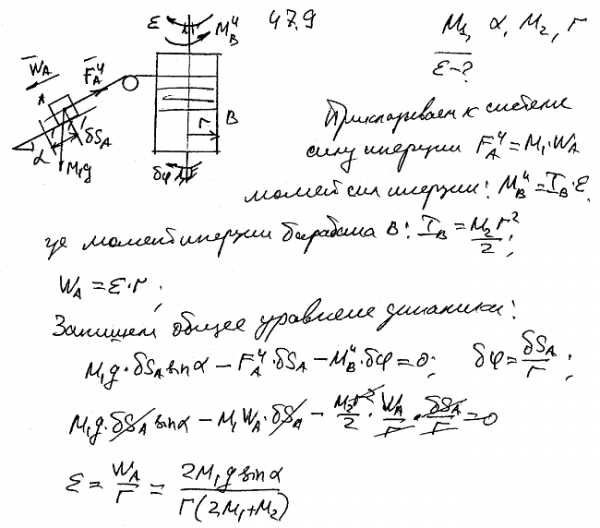 47.9
M₁, α, M₂, r
ε-?
ε
M_B^и
W̄_A
F̄_A^и
A
r
B
δS_A
α
M₁g
δφ
Прикладываем к системе
силу инерции F_A^и = M₁·W_A
момент сил инерции: M_B^и = I_B·ε,
где момент инерции барабана B: I_B = M₂r²/2;
W_A = ε·r;
Запишем общее уравнение динамики:
M₁g·δS_A sinα − F_A^и·δS_A − M_B^и·δφ = 0; δφ = δS_A/r;
M₁g·δS_A sinα − M₁W_A·δS_A − M₂r²/2·W_A/r·δS_A/r = 0
ε = W_A/r = 2M₁g sinα/r(2M₁+M₂)